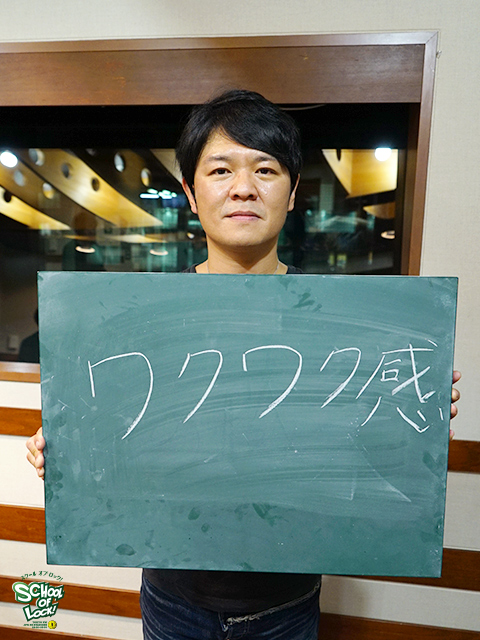 ワクワク感
スクール オブ ロック!
SCHOOL
OF
LOCK!